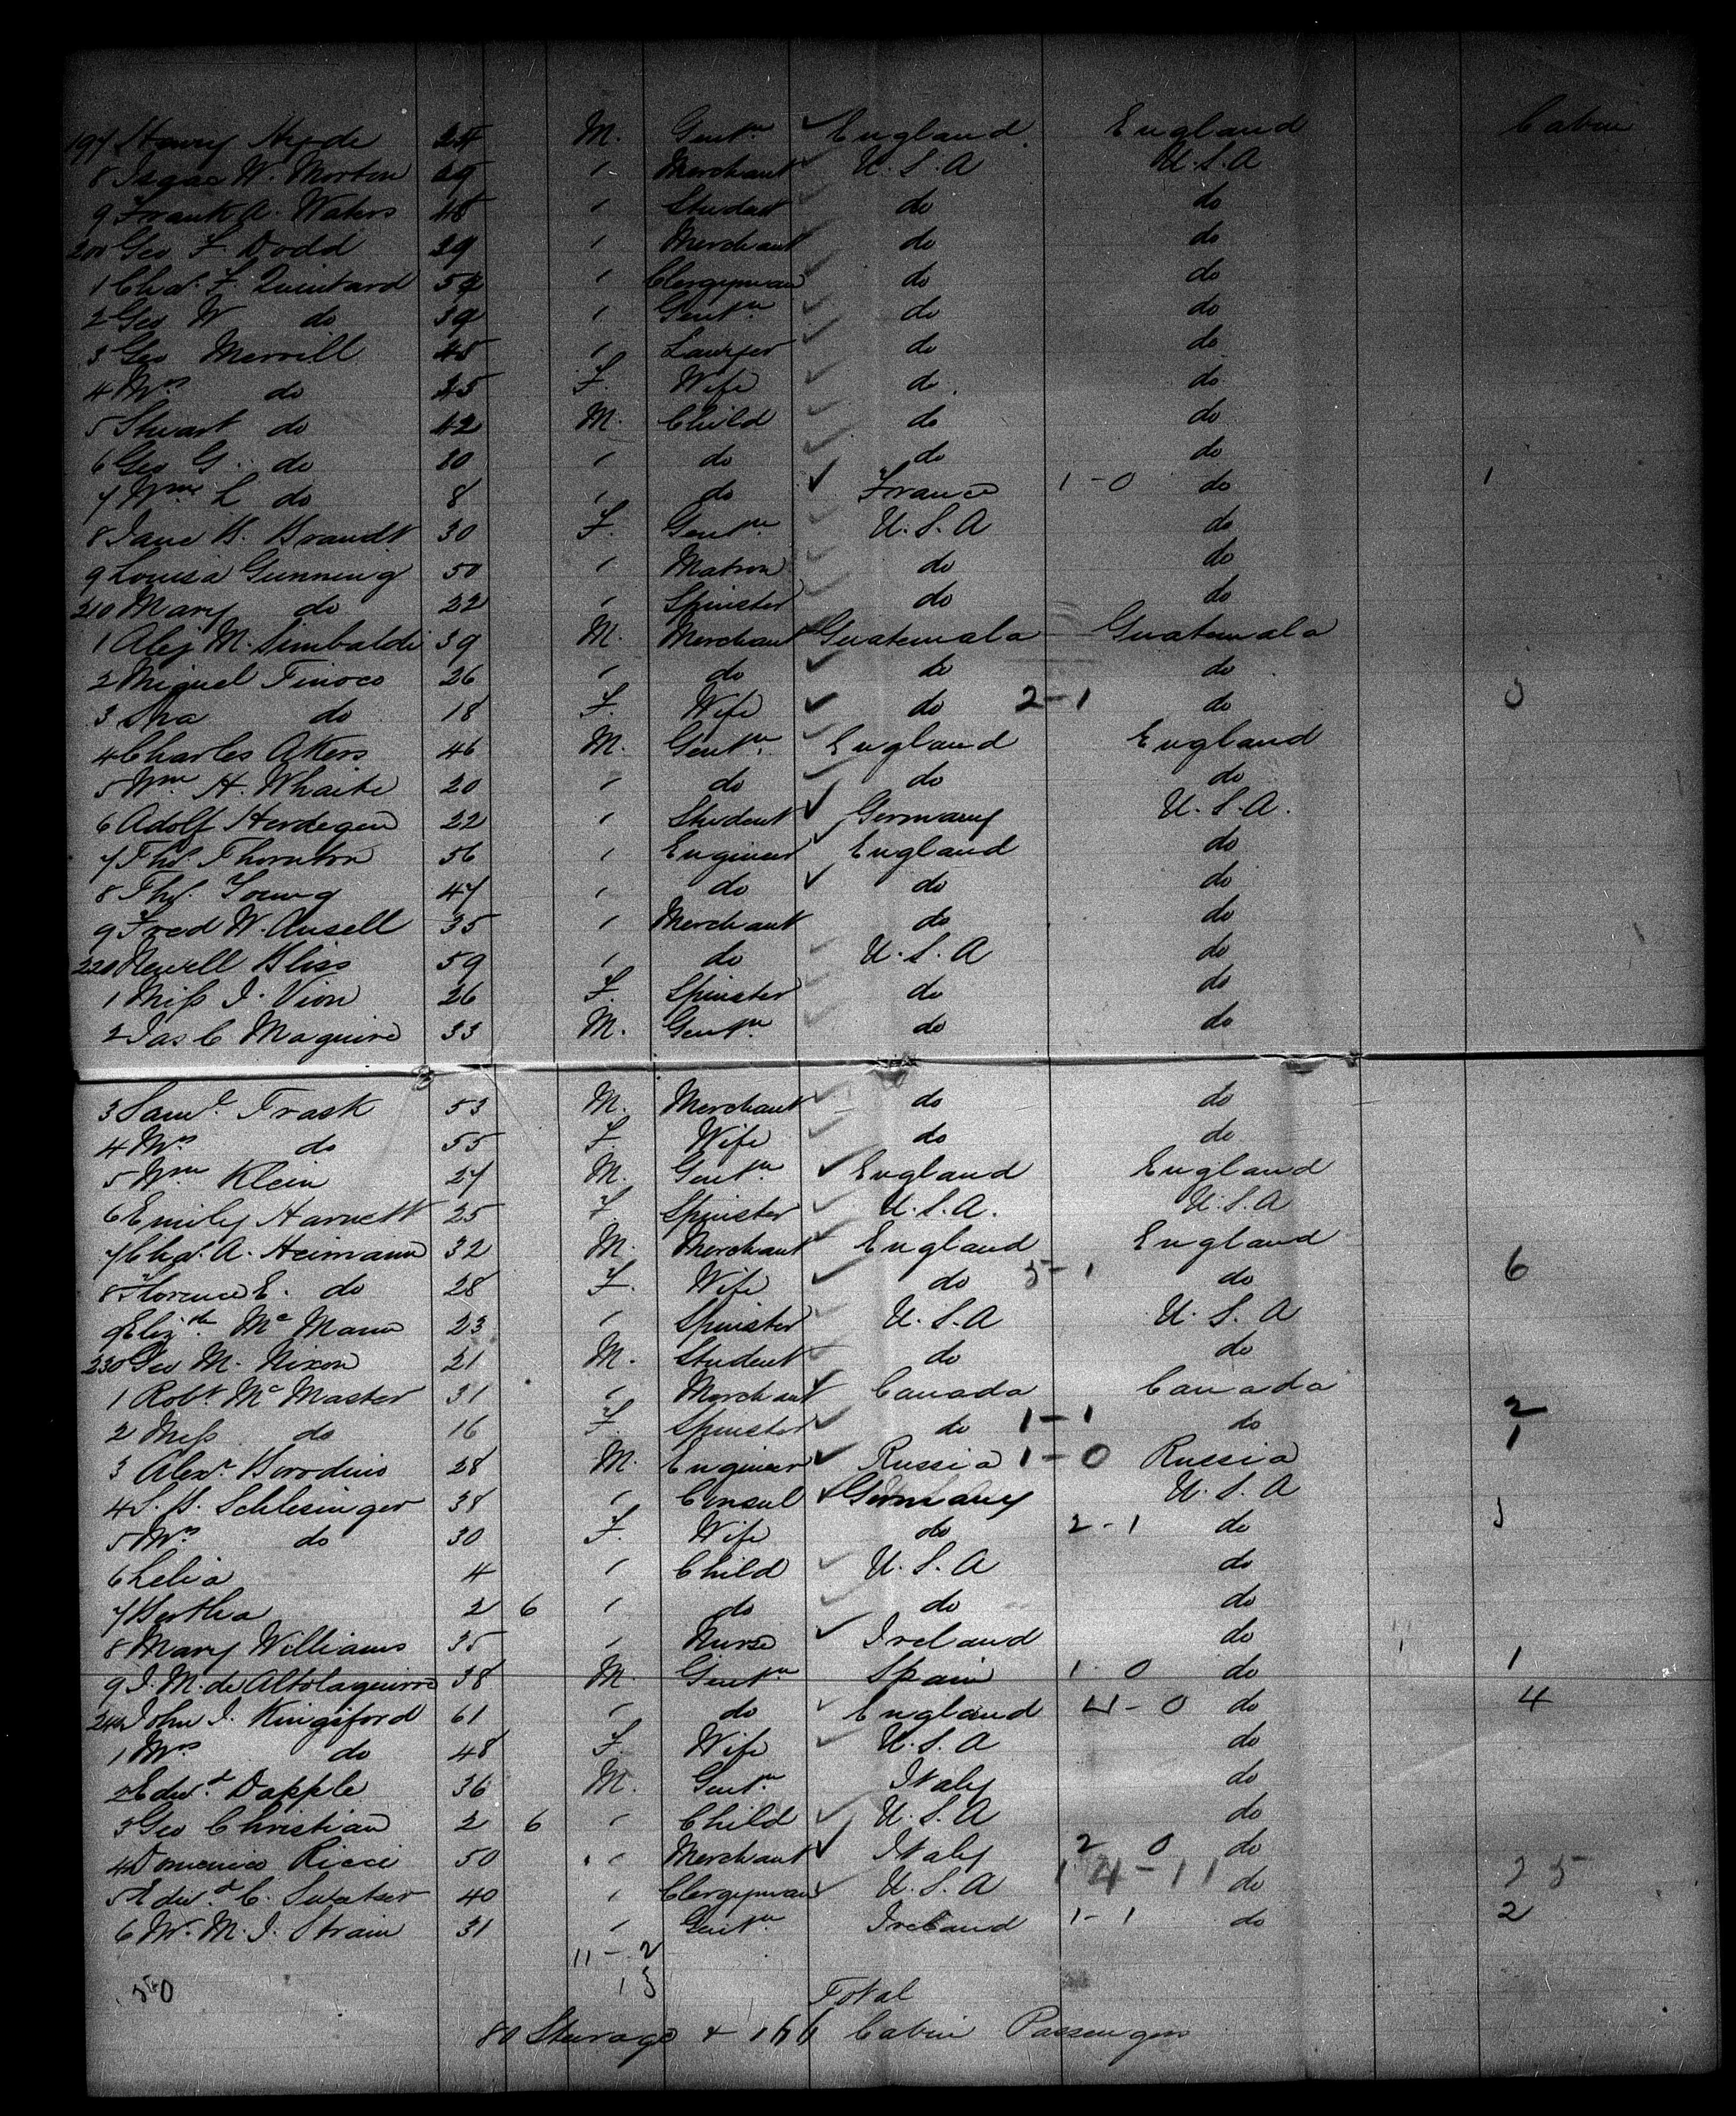 197 Henry Hyde 24 M. Gentn England England Cabin
8 Isaac W. Morton 29 " Merchant U.S.A U.S.A
9 Frank A. Waters 18 " Student do do
200 Geo F Dodd 29 " Merchant do do
1 Chas. F. Quintard 54 " Clergyman do do
2 Geo W do 39 " Gentn do do
3 Geo Merrill 45 " Lawyer do do
4 Mrs do 45 F. Wife do do
5 Stuart do 12 M. Child do do
6 Geo G. do 10 " do do do
7 Wm L do 8 " do France 1-0 do 1
8 Jane B. Brandt 30 F. Gentn U.S.A do
9 Louisa Gunning 50 " Matron do do
210 Mary do 22 " Spinster do do
1 Alej M. Sinibaldi 39 M. Merchant Guatemala Guatemala
2 Miguel Tinoco 26 " do do do
3 Sra do 18 F. Wife do 2-1 do 3
4 Charles Akers 46 M. Gentn England England
5 Wm H. Whaite 20 " do do do
6 Adolf Herdegen 22 " Student Germany U.S.A.
7 Thos. Thornton 56 " Engineer England do
8 Thos. Young 47 " do do do
9 Fred W. Ansell 35 " Merchant do do
220 Newell Bliss 59 " do U.S.A do
1 Miss J. Vion 26 F. Spinster do do
2 Jas C Maguire 33 M. Gentn do do
3 Saml. Trask 53 M. Merchant do do
4 Mrs do 55 F. Wife do do
5 Wm Klein 27 M. Gentn England England
6 Emily Harnett 25 F Spinster U.S.A. U.S.A
7 Chas. A. Heimann 32 M. Merchant England England
8 Florence E. do 28 F. Wife do 5-1 do 6
9 Elizth. Mc Mann 23 " Spinster U.S.A U.S.A
230 Geo M. Nixon 21 M. Student do do
1 Robt. Mc Master 31 " Merchant Canada Canada
2 Miss do 16 F. Spinster do 1-1 do 2
3 Alexr. Borodins 28 M. Engineer Russia 1-0 Russia 1
4 S. B. Schlesinger 38 " Consul Germany U.S.A
5 Mrs do 30 F. Wife do 2-1 do 3
6 Lelia 4 " Child U.S.A do
7 Bertha 2 6 " do do do
8 Mary Williams 35 " Nurse Ireland do
9 J. M. de Altolaguirre 38 M. Gentn Spain 1 0 do 1
240 John J. Kingsford 61 " do England 4-0 do 4
1 Mrs do 48 F. Wife U.S.A do
2 Edwd. Dapple 36 M. Gentn Italy do
3 Geo Christian 2 6 " Child U.S.A do
4 Domenico Ricci 50 " Merchant Italy 2 0 do
5 Edwd C. 40 " Clergyman U.S.A 14-11 do 25
6 W. M. J. Strain 31 " Gentn Ireland 1-1 do 2
11-2
13
Total
80 Steerage & 166 Cabin Passengers